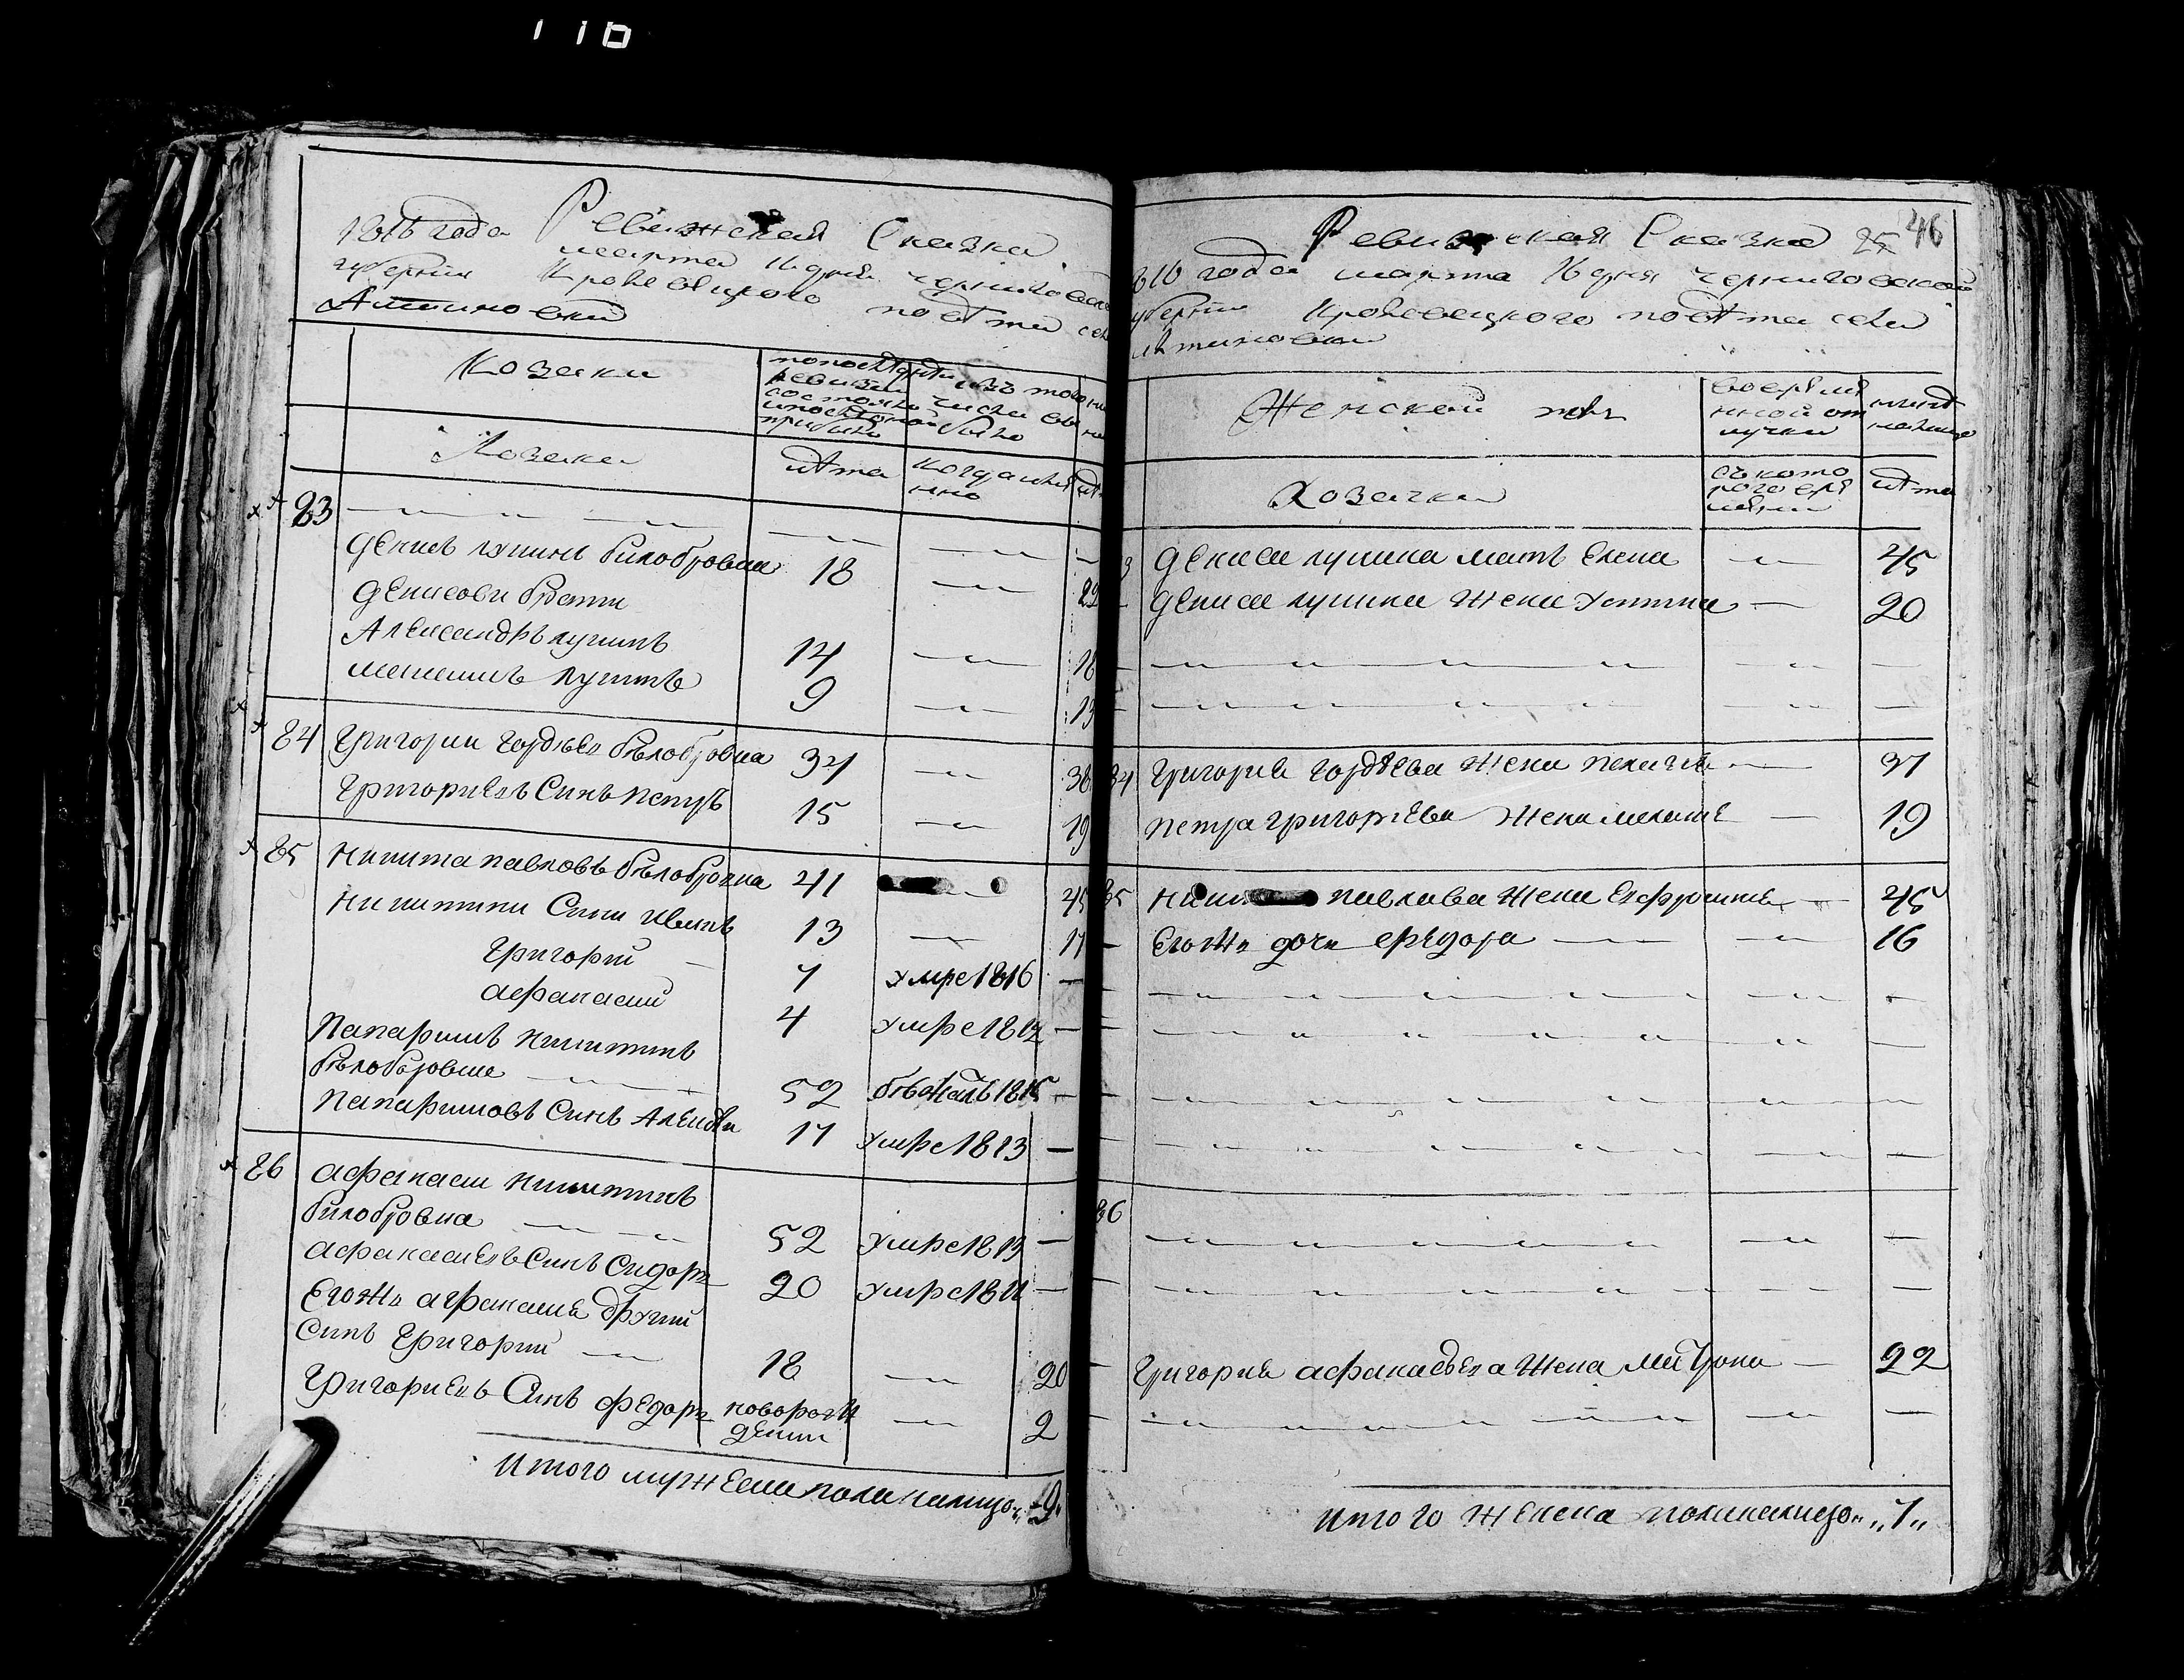 116
Ревижская Сказка
1816 года марта 16 дня черниговской
губернии Кролевецкого повѣта села
Алтиновки
Козаки
попоследней ревизии состояло и после оной прибыло
изъ того числа выбыло
Козаки
лѣта
когда именно
83
Денисъ лукинъ билобровка 18 — 22
Денисови брати
Александръ лукинъ 14 — 18
лукинъ 9 — 13
84 Григории Гордѣевъ бѣлобровка 34 — 38
Григориевъ Синъ петръ 15 — 19
85 Никита павловъ бѣлобровка 41 — 45
Никитини Сини иванъ 13 — 17
Григорий 7 умре 1816 —
афанасий 4 умре 1812 —
Никитинъ
бѣлобровка 52 бѣжалъ 1815 —
Синъ 17 умре 1813 —
86 афанаси Никитинъ
билобровка 52 умре 1813 —
афанасиевъ Синъ Сидоръ 20 умре 1811 —
Егожъ афанасия другий
Синъ Григорий 18 — 20
Григориевъ Синъ федоръ новорожденни — 2
Итого мужеска пола налицо „9„
46
25
Ревижская Сказка
1816 года марта 16 дня черниговской
губернии Кролевецкого повѣта села
Алтиновки
Женской полъ
во временной отлучки
ныне налице
Козачки
съ которого времяни
лѣта
83 Дениса лукина мать Елена — 45
Дениса лукина жена Устина — 20
84 Григория гордѣева жена пелагея — 37
Петра григориева жена — 19
85 Никиты павлова жена Евфросиния — 45
Егожъ дочь федора — 16
86
Григория афанасьева жена матрона — 22
Итого женска пола налицо „7„